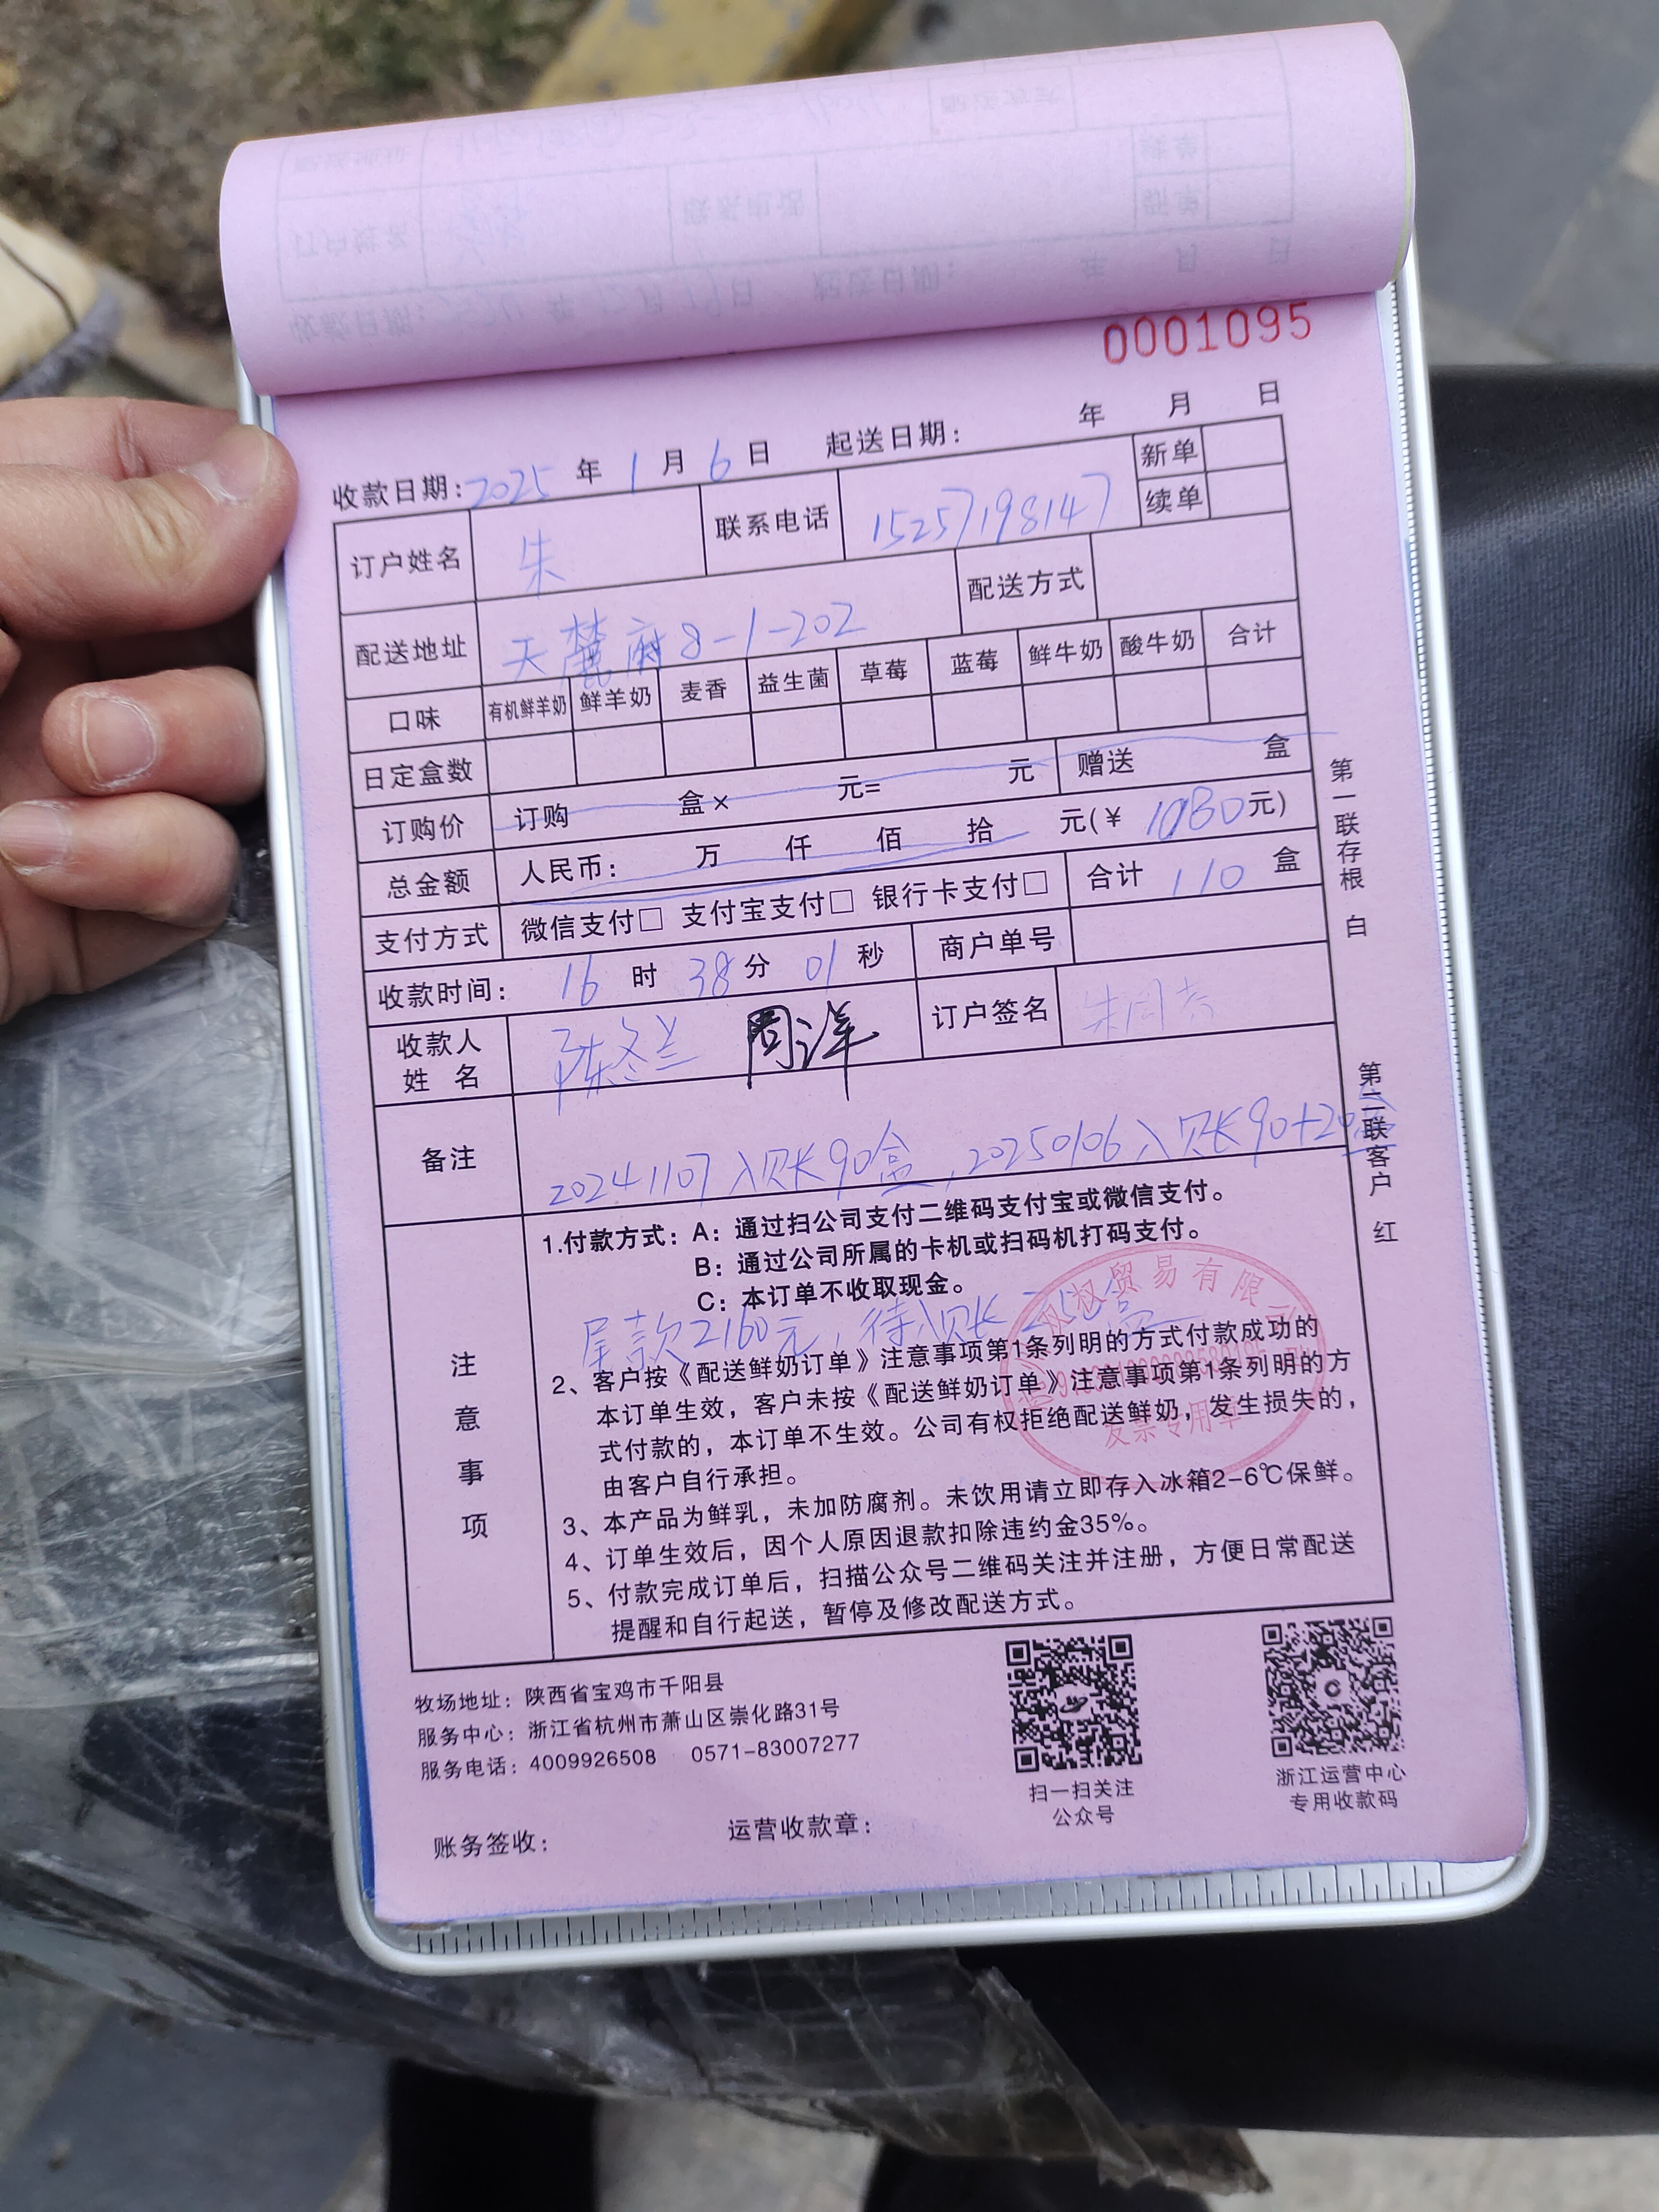 0001095
收款日期：2025年1月6日 起送日期： 年 月 日
订户姓名 朱 联系电话 15257198147 新单
续单
配送地址 天麓府8-1-202 配送方式
口味 有机鲜羊奶 鲜羊奶 麦香 益生菌 草莓 蓝莓 鲜牛奶 酸牛奶 合计
日定盒数
订购价 订购 盒× 元= 元 赠送 盒
总金额 人民币： 万 仟 佰 拾 元(￥1080元)
支付方式 微信支付□ 支付宝支付□ 银行卡支付□ 合计 110 盒
收款时间： 16时38分01秒 商户单号
收款人姓名 陈冬兰 周洋 订户签名
备注 20241107入账90盒，20250106入账90+20盒
注意事项
1.付款方式：A：通过扫公司支付二维码支付宝或微信支付。
B：通过公司所属的卡机或扫码机打码支付。
C：本订单不收取现金。
尾款2160元，待入账
2、客户按《配送鲜奶订单》注意事项第1条列明的方式付款成功的
本订单生效，客户未按《配送鲜奶订单》注意事项第1条列明的方
式付款的，本订单不生效。公司有权拒绝配送鲜奶，发生损失的，
由客户自行承担。
3、本产品为鲜乳，未加防腐剂。未饮用请立即存入冰箱2-6℃保鲜。
4、订单生效后，因个人原因退款扣除违约金35%。
5、付款完成订单后，扫描公众号二维码关注并注册，方便日常配送
提醒和自行起送，暂停及修改配送方式。
权贸易有限
发票专用章
第一联存根 白
第二联客户 红
牧场地址：陕西省宝鸡市千阳县
服务中心：浙江省杭州市萧山区崇化路31号
服务电话：4009926508 0571-83007277
扫一扫关注
公众号
浙江运营中心
专用收款码
账务签收： 运营收款章：